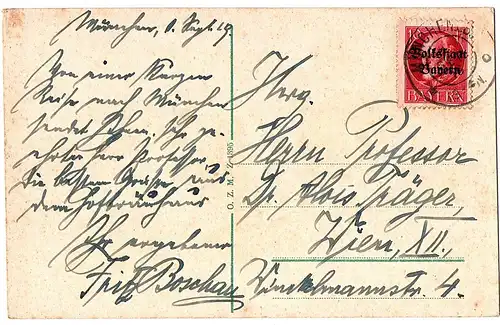 München, 1. Sept. 19
Von einer kurzen
Reise nach München
sendet Ihnen, sehr ge-
ehrter Herr Professor
die besten Grüße aus
dem Hofbräuhaus
Ihr ergebener
Fritz Boschan
O. Z. M. 1895
Volksstaat
Bayern
BAYERN
Herrn Professor
Dr. Alois Träger,
Wien, XII.,
Winckelmannstr. 4.